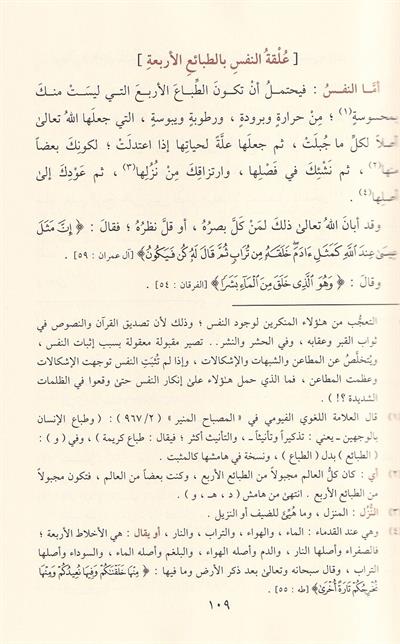 [ عُلْقةُ النفسِ بالطبائعِ الأربعةِ ]
أمَّا النفسُ : فيحتملُ أنْ تكونَ الطِّباعَ الأربعَ التي ليسَتْ منكَ
بمحسوسةٍ(١) ؛ مِنْ حرارةٍ وبرودةٍ ، ورطوبةٍ ويبوسةٍ ، التي جعلَها اللهُ تعالى
أصلاً لكلِّ ما جُبلَتْ ، ثم جعلَها علَّةً لحياتِها إذا اعتدلَتْ ؛ لكونِكَ بعضاً
منها(٢) ، ثم نَشْئِكَ في فَصْلِها ، وارتزاقِكَ مِنْ نُزُلِها(٣) ، ثم عَوْدِكَ إلى
أصلِها(٤) .
وقد أبانَ اللهُ تعالى ذلكَ لمَنْ كَلَّ بصرُهُ ، أو قلَّ نظرُهُ ؛ فقالَ : ﴿ إِنَّ مَثَلَ
عِيسَىٰ عِندَ اللَّهِ كَمَثَلِ ءَادَمَ خَلَقَهُ مِن تُرَابٍ ثُمَّ قَالَ لَهُ كُن فَيَكُونُ ﴾ [آل عمران : ٥٩] .
وقالَ : ﴿ وَهُوَ الَّذِى خَلَقَ مِنَ الْمَاءِ بَشَرًا ﴾ [الفرقان : ٥٤] .
التعجُّب من هؤلاء المنكرين لوجود النفس ؛ وذلك لأن تصديق القرآن والنصوص في
ثواب القبر وعقابه ، وفي الحشر والنشر.. تصير مقبولة معقولة بسبب إثبات النفس ،
ويُتخلَّصُ عن المطاعن والشبهات والإشكالات ، وإذا لم تُثبَتِ النفس توجهت الإشكالات
وعظمت المطاعن ، فما الذي حمل هؤلاء علىٰ إنكار النفس حتىٰ وقعوا في الظلمات
الشديدة ؟! ) .
(١) قال العلامة اللغوي الفيومي في « المصباح المنير » ( ٩٦٧/٢ ) : ( وطباع الإنسان
بالوجهين ـ يعني : تذكيراً وتأنيثاً ـ ، والتأنيث أكثر ؛ فيقال : طباع كريمة ) ، وفي ( و ) :
( الطبائع ) بدل ( الطباع ) ، ونسخة في هامشها كالمثبت .
(٢) أي : كان كلُّ العالم مجبولاً من الطبائع الأربع ، وكنت بعضاً من العالم ، فتكون مجبولاً
من الطبائع الأربع . انتهىٰ من هامش ( د ، هـ ، و ) .
(٣) النُّزُل : المنزل ، وما هُيِّئَ للضيف أو النزيل .
(٤) وهي عند القدماء : الماء ، والهواء ، والتراب ، والنار ، أو يقال : هي الأخلاط الأربعة ؛
فالصفراء وأصلها النار ، والدم وأصله الهواء ، والبلغم وأصله الماء ، والسوداء وأصلها
التراب ، وقال سبحانه وتعالىٰ بعد ذكر الأرض وما فيها : ﴿ مِنْهَا خَلَقْنَاكُمْ وَفِيهَا نُعِيدُكُمْ وَمِنْهَا
نُخْرِجُكُمْ تَارَةً أُخْرَىٰ ﴾ [طه : ٥٥] .
١٠٩